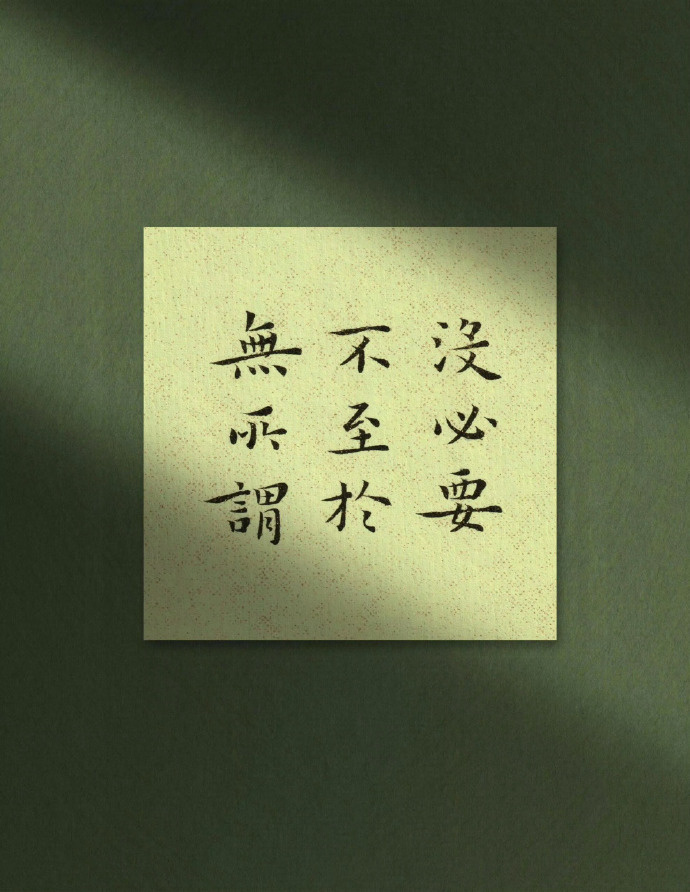 沒必要
不至於
無所謂